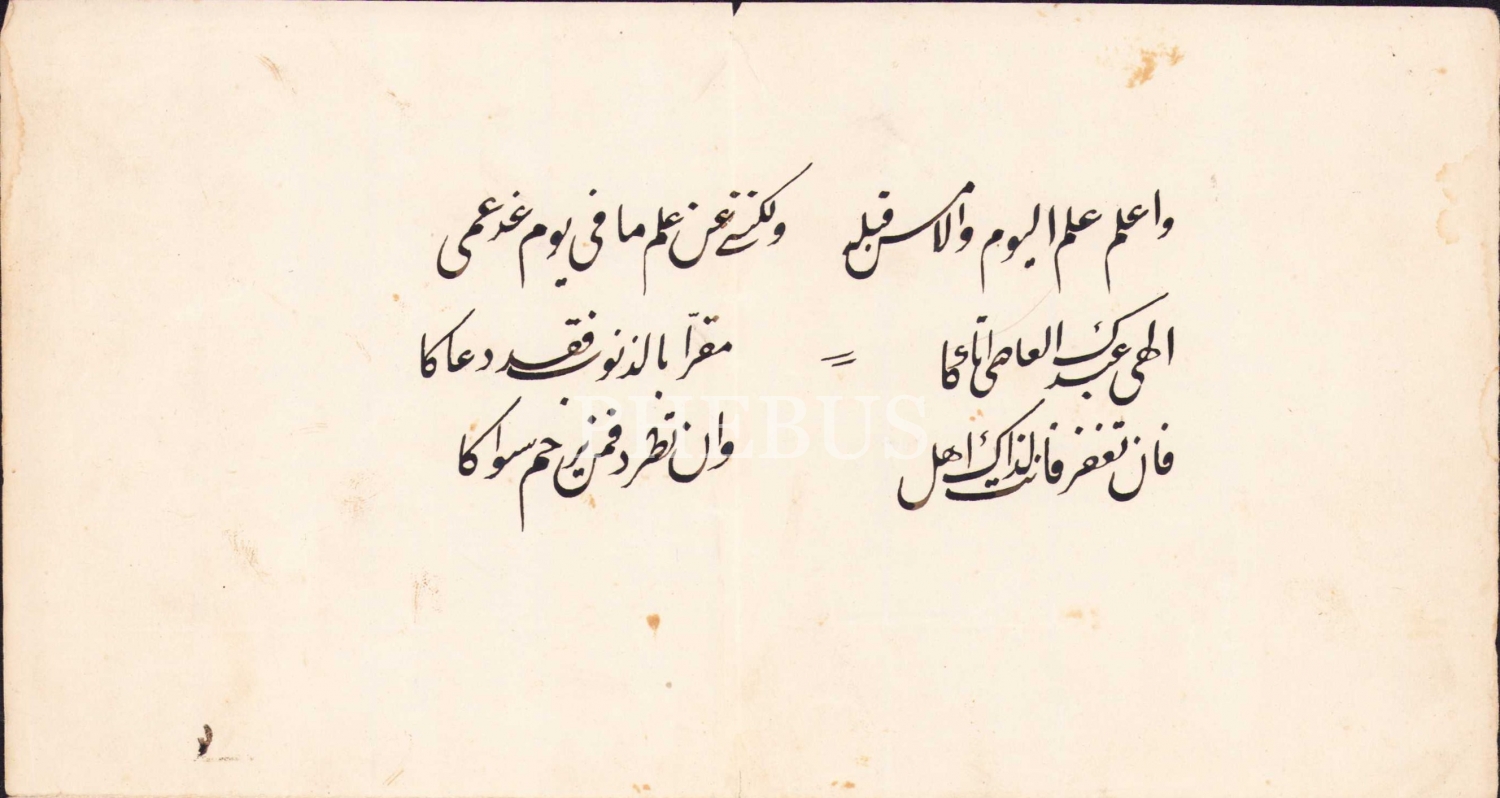 واعلم علم اليوم والامس قبله ولكننى عن علم ما فى يوم غد عمى
الهى عبدك العاصى اتاكا = مقرّا بالذنوب فقد دعاكا
فان تغفر فانت لذاك اهل وان تطرد فمن يرحم سواكا
PHEBUS